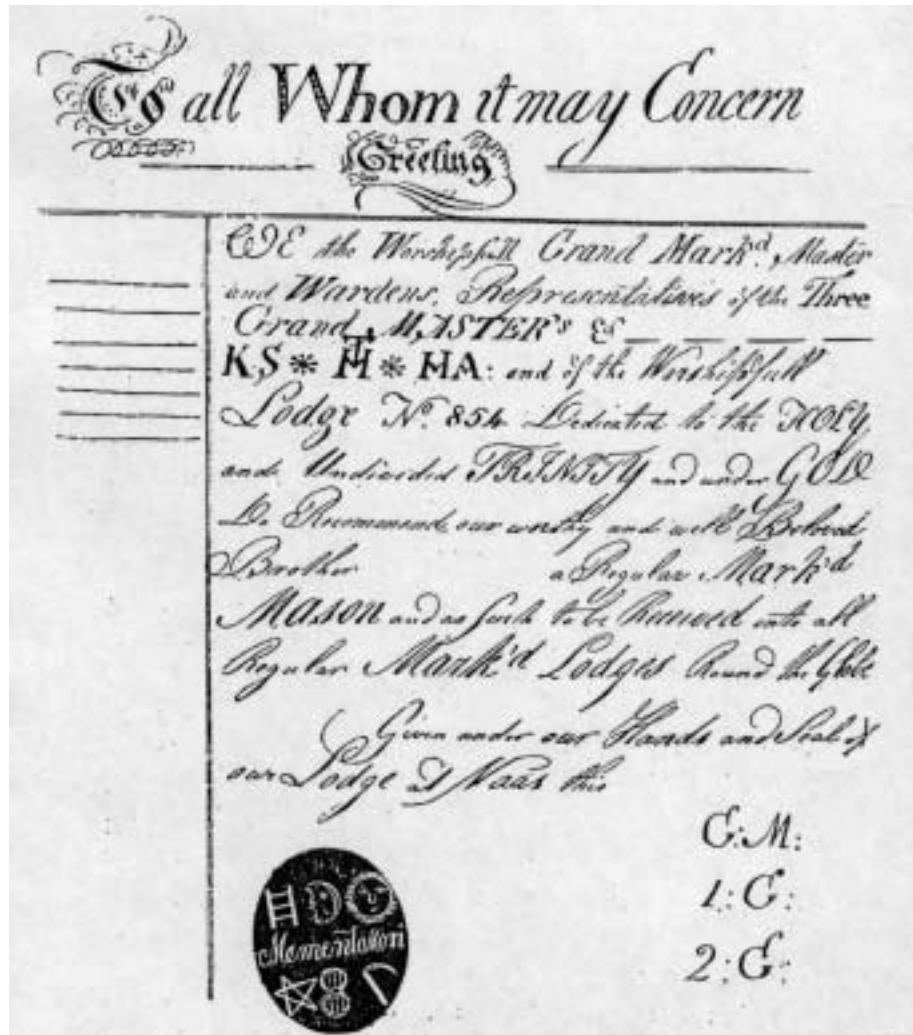 To all Whom it may Concern
Greeting
WE the Worshipfull Grand Mark'd, Master
and Wardens, Representatives of the Three
Grand MASTER's &
KS * HT * HA: and of the Worshipfull
Lodge No. 854 Dedicated to the HOLY
and Undivided TRINITY and under GOLD
Do Recommend our worthy and well Beloved
Brother a Regular Mark'd
Mason and as such to be Received into all
Regular Mark'd Lodges Round the Globe
Given under our Hands and Seal of
our Lodge at Naas this
G:M:
1:G:
2:G:
Memento Mori